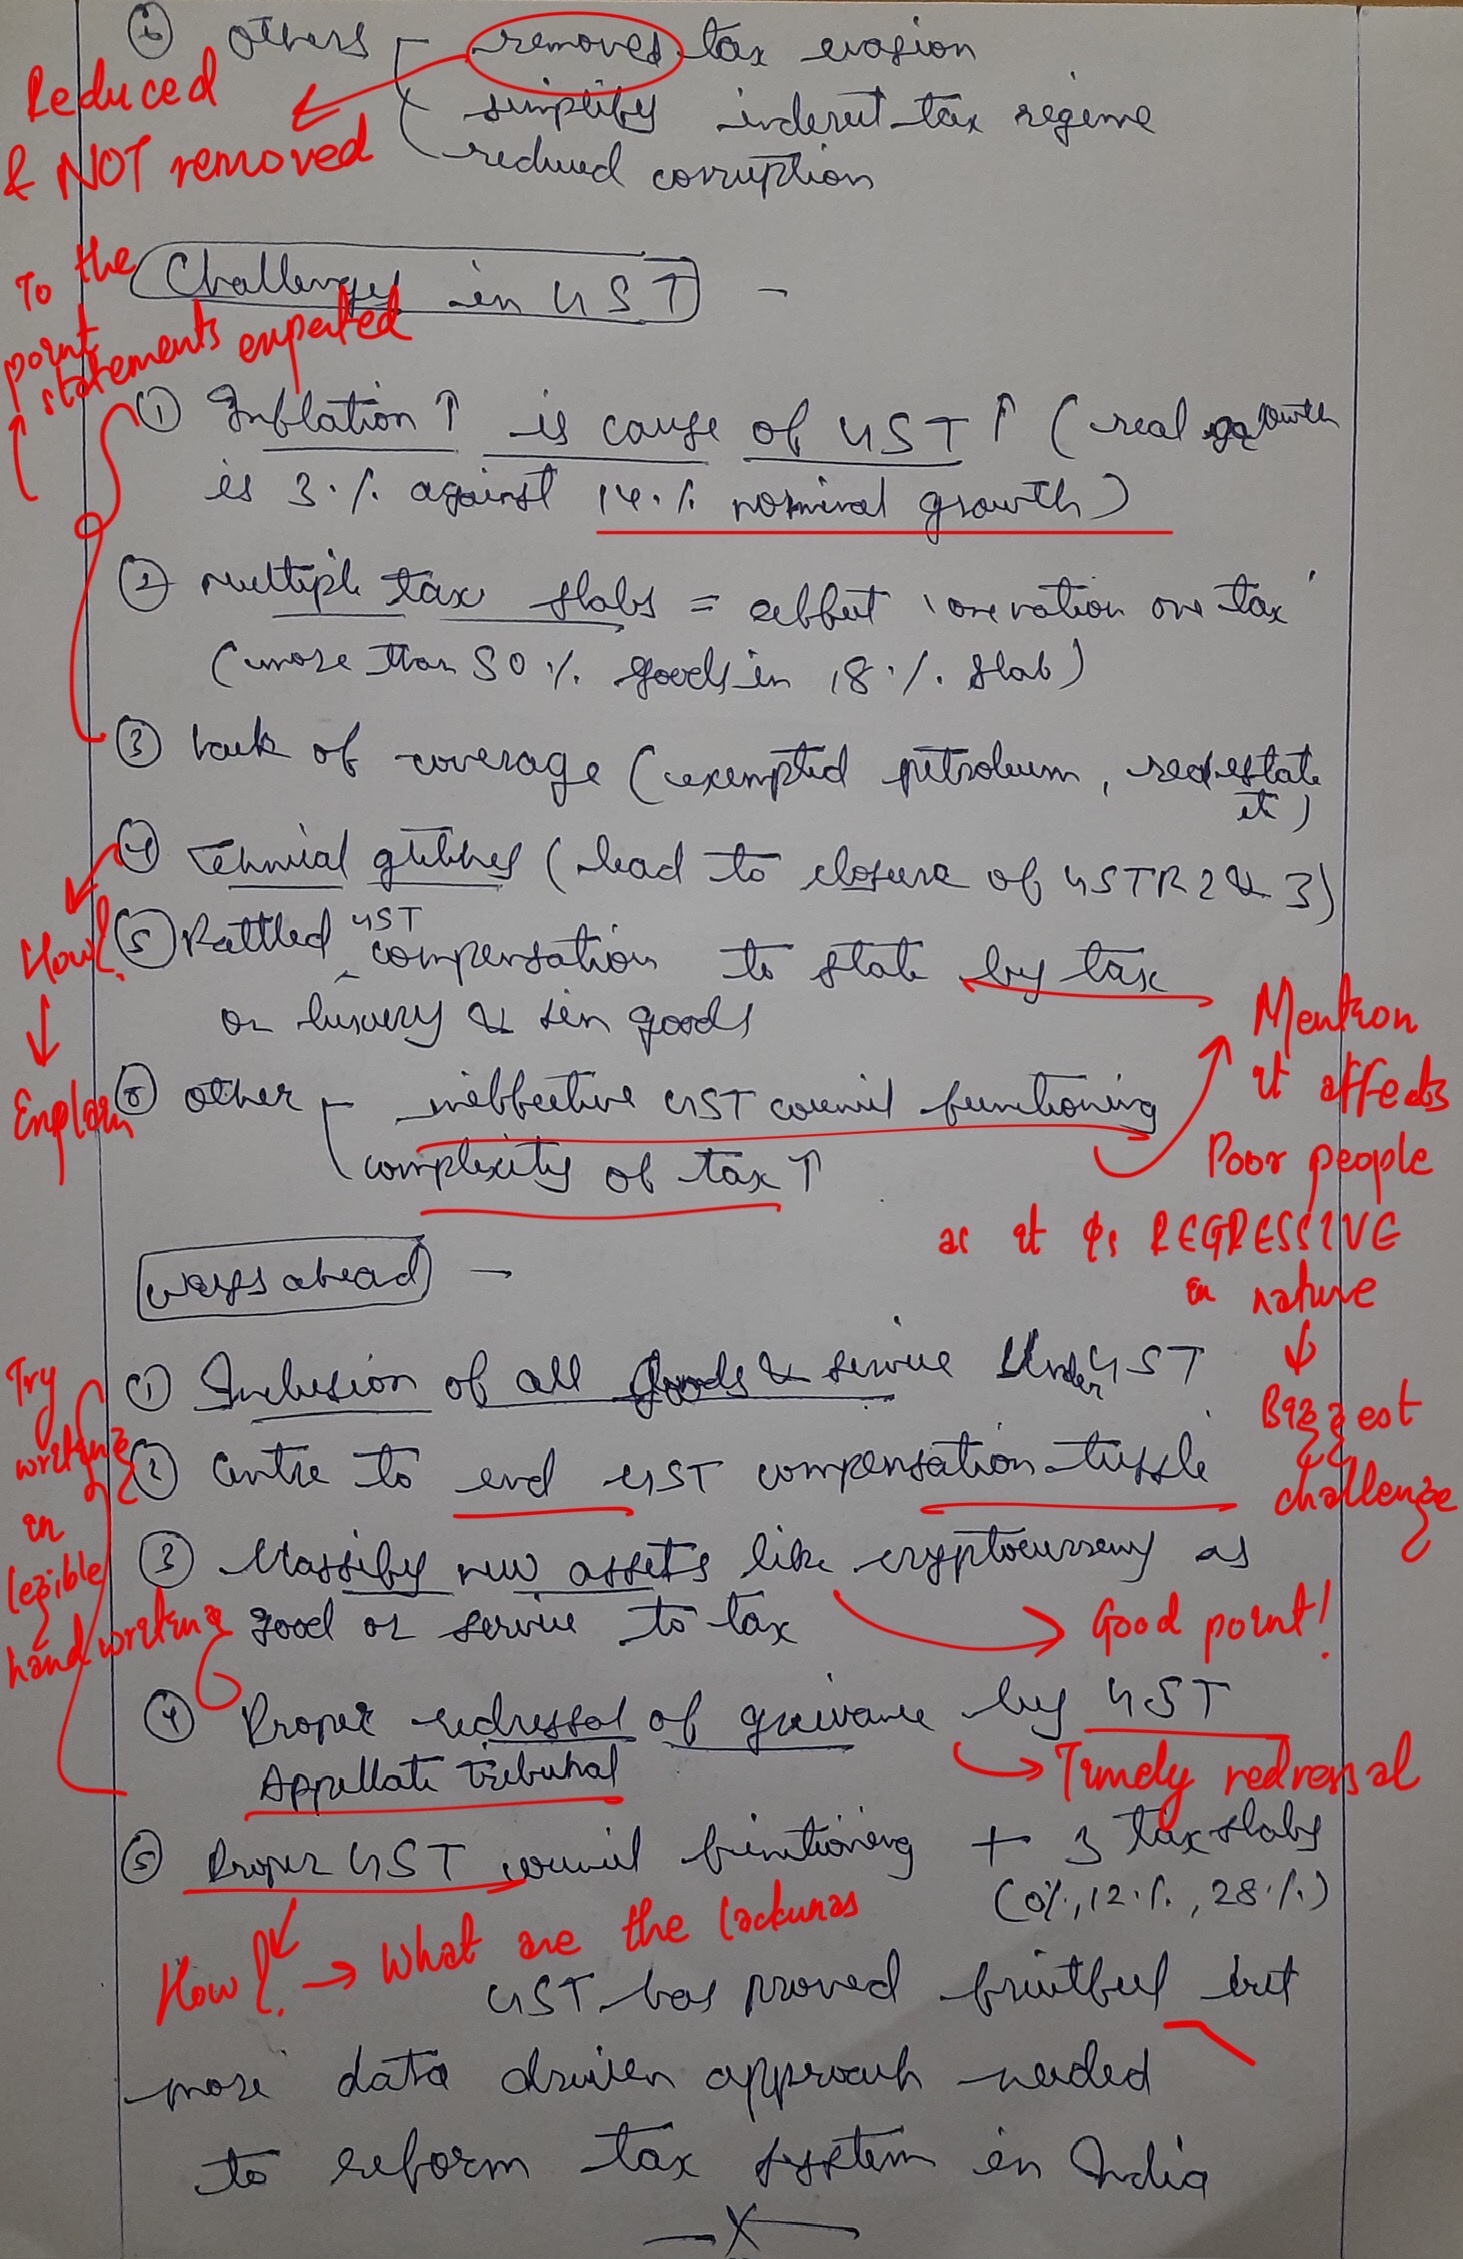 ⑥ others - removes tax evasion
Reduced
& NOT removed
simplify indirect tax regime
reduced corruption
To the
point
statements expected
Challenges in GST -
① Inflation ↑ is cause of GST ↑ (real growth
is 3% against 14% nominal growth)
② multiple tax slabs = affect 'one nation one tax'
(more than 50% goods in 18% slab)
③ lack of coverage (exempted petroleum, real estate
etc)
④ Technical glitches (lead to closure of GSTR 2 & 3)
How?
Explain
⑤ Rattled GST compensation to state by tax
on luxury & sin goods
⑥ other - ineffective GST council functioning
complexity of tax ↑
Mention
it affects
Poor people
as it is REGRESSIVE
in nature
Biggest
challenge
Ways ahead -
Try
writing
in
legible
handwriting
① Inclusion of all Goods & service Under GST
② Centre to end GST compensation tussle
③ Classify new assets like cryptocurrency as
good or service to tax
Good point!
④ Proper redressal of grievance by GST
Appellate Tribunal
Timely redressal
⑤ Proper GST council functioning + 3 tax slabs
(0%, 12%, 28%)
How? → What are the lackunas
GST has proved fruitful but
more data driven approach needed
to reform tax system in India
—X—